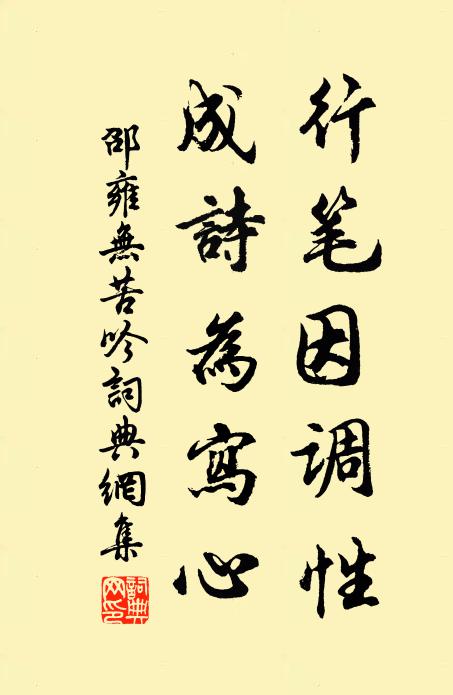 行笔因调性
成詩為寫心
邵雍無苦吟詞典網集
詞典网印